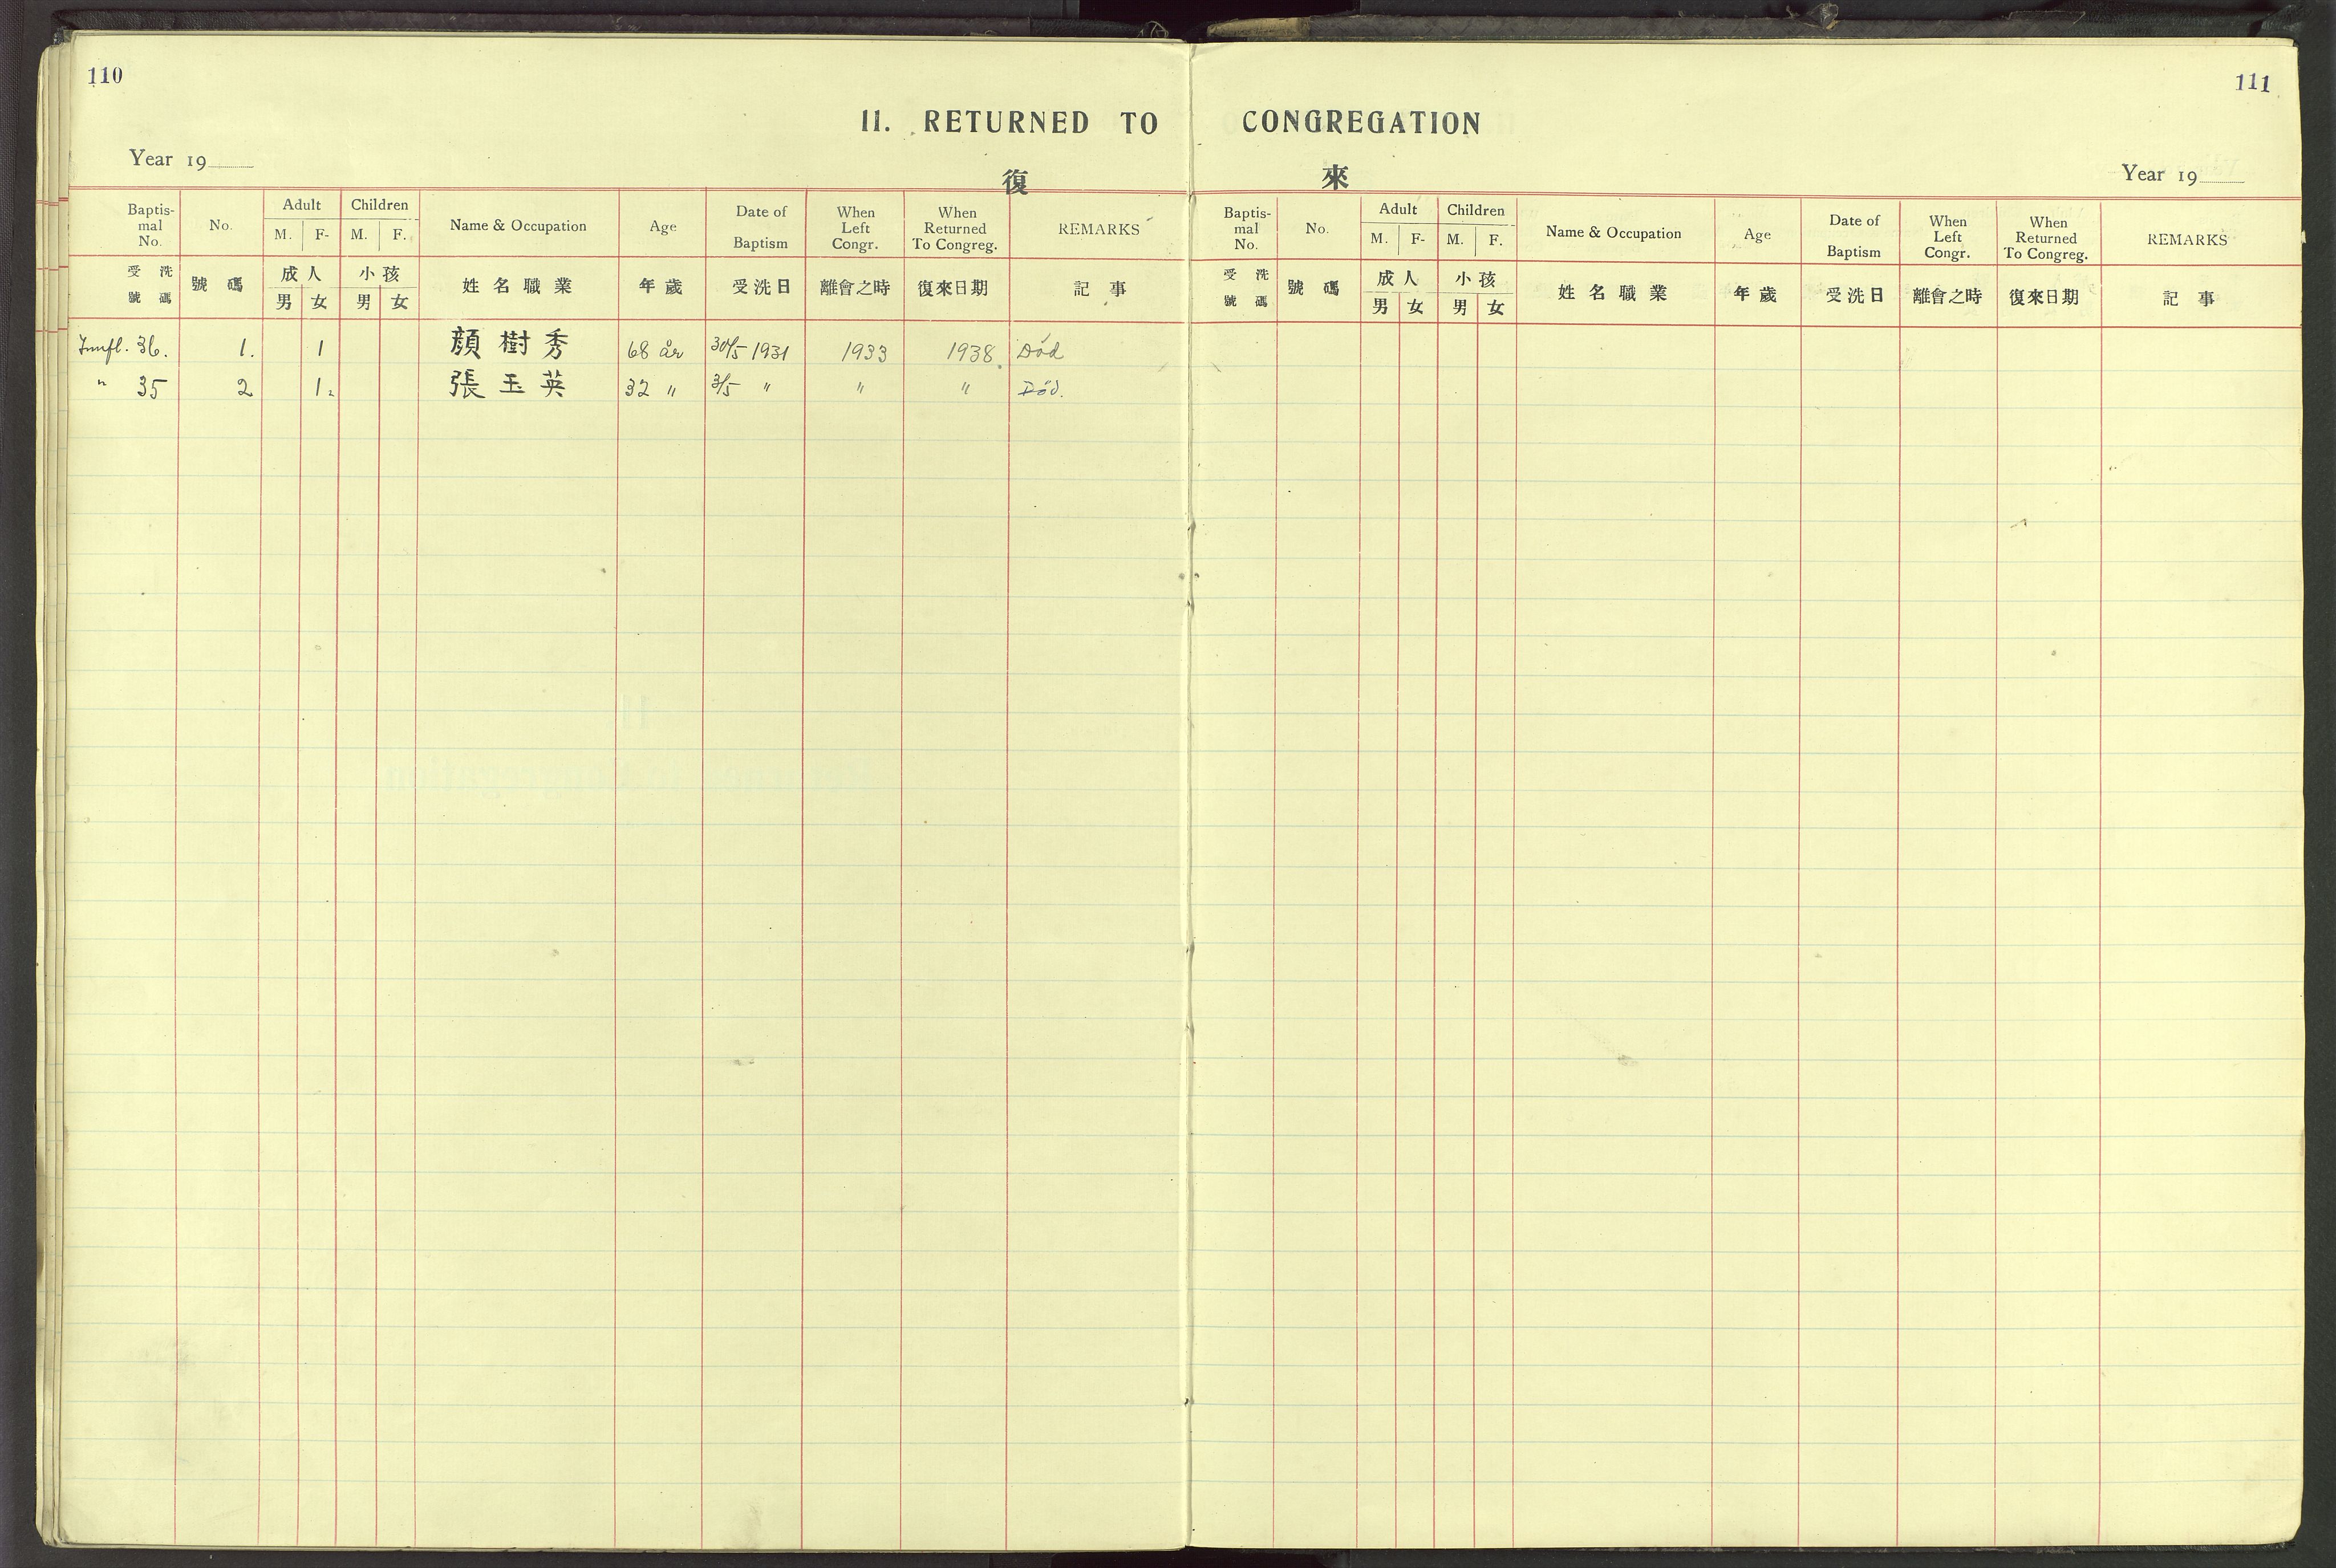 110
111
11. RETURNED TO CONGREGATION
復 來
Year 19
Year 19
Baptismal No. No. Adult M. F- Children M. F. Name & Occupation Age Date of Baptism When Left Congr. When Returned To Congreg. REMARKS
受洗號碼 號碼 成人 男 女 小孩 男 女 姓名職業 年歲 受洗日 離會之時 復來日期 記事
36. 1. 1 顏樹秀 68 år 30/5 1931 1933 1938 Död
" 35 2 1 張玉英 32 " 3/5 " " " Död.
Baptismal No. No. Adult M. F- Children M. F. Name & Occupation Age Date of Baptism When Left Congr. When Returned To Congreg. REMARKS
受洗號碼 號碼 成人 男 女 小孩 男 女 姓名職業 年歲 受洗日 離會之時 復來日期 記事